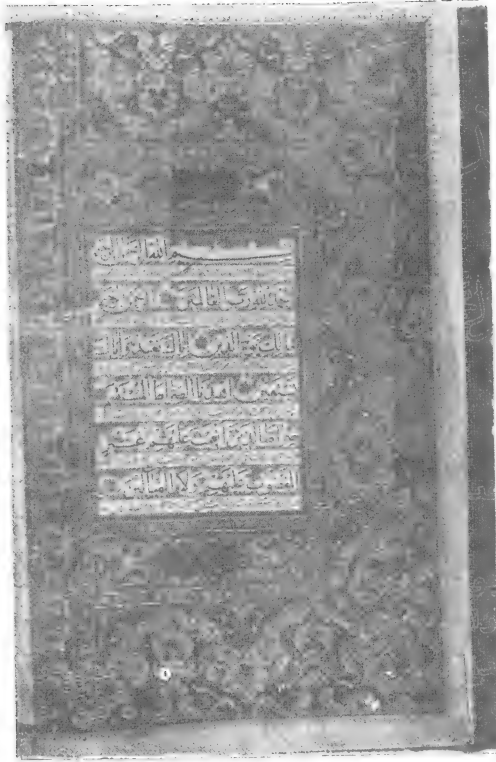 بسم الله الرحمن الرحيم
الحمد لله رب العالمين الرحمن
مالك يوم الدين اياك نعبد واياك
نستعين اهدنا الصراط المستقيم
صراط الذين انعمت عليهم غير
المغضوب عليهم ولا الضالين